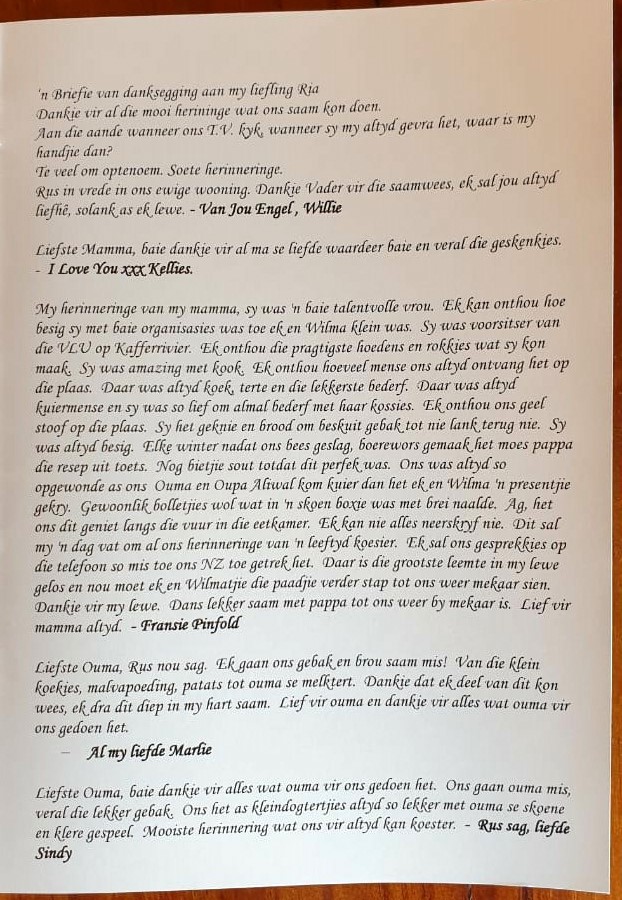 'n Briefie van danksegging aan my liefling Ria
Dankie vir al die mooi herininge wat ons saam kon doen.
Aan die aande wanneer ons T.V. kyk, wanneer sy my altyd gevra het, waar is my
handjie dan?
Te veel om optenoem. Soete herinneringe.
Rus in vrede in ons ewige wooning. Dankie Vader vir die saamwees, ek sal jou altyd
liefhê, solank as ek lewe. - Van Jou Engel , Willie
Liefste Mamma, baie dankie vir al ma se liefde waardeer baie en veral die geskenkies.
- I Love You xxx Kellies.
My herinneringe van my mamma, sy was 'n baie talentvolle vrou. Ek kan onthou hoe
besig sy met baie organisasies was toe ek en Wilma klein was. Sy was voorsitser van
die VLU op Kafferrivier. Ek onthou die pragtigste hoedens en rokkies wat sy kon
maak. Sy was amazing met kook. Ek onthou hoeveel mense ons altyd ontvang het op
die plaas. Daar was altyd koek, terte en die lekkerste bederf. Daar was altyd
kuiermense en sy was so lief om almal bederf met haar kossies. Ek onthou ons geel
stoof op die plaas. Sy het geknie en brood om beskuit gebak tot nie lank terug nie. Sy
was altyd besig. Elke winter nadat ons bees geslag, boerewors gemaak het moes pappa
die resep uit toets. Nog bietjie sout totdat dit perfek was. Ons was altyd so
opgewonde as ons Ouma en Oupa Aliwal kom kuier dan het ek en Wilma 'n presentjie
gekry. Gewoonlik bolletjies wol wat in 'n skoen boxie was met brei naalde. Ag, het
ons dit geniet langs die vuur in die eetkamer. Ek kan nie alles neerskryf nie. Dit sal
my 'n dag vat om al ons herinneringe van 'n leeftyd koesier. Ek sal ons gesprekkies op
die telefoon so mis toe ons NZ toe getrek het. Daar is die grootste leemte in my lewe
gelos en nou moet ek en Wilmatjie die paadjie verder stap tot ons weer mekaar sien.
Dankie vir my lewe. Dans lekker saam met pappa tot ons weer by mekaar is. Lief vir
mamma altyd. - Fransie Pinfold
Liefste Ouma, Rus nou sag. Ek gaan ons gebak en brou saam mis! Van die klein
koekies, malvapoeding, patats tot ouma se melktert. Dankie dat ek deel van dit kon
wees, ek dra dit diep in my hart saam. Lief vir ouma en dankie vir alles wat ouma vir
ons gedoen het.
– Al my liefde Marlie
Liefste Ouma, baie dankie vir alles wat ouma vir ons gedoen het. Ons gaan ouma mis,
veral die lekker gebak. Ons het as kleindogtertjies altyd so lekker met ouma se skoene
en klere gespeel. Mooiste herinnering wat ons vir altyd kan koester. - Rus sag, liefde
Sindy